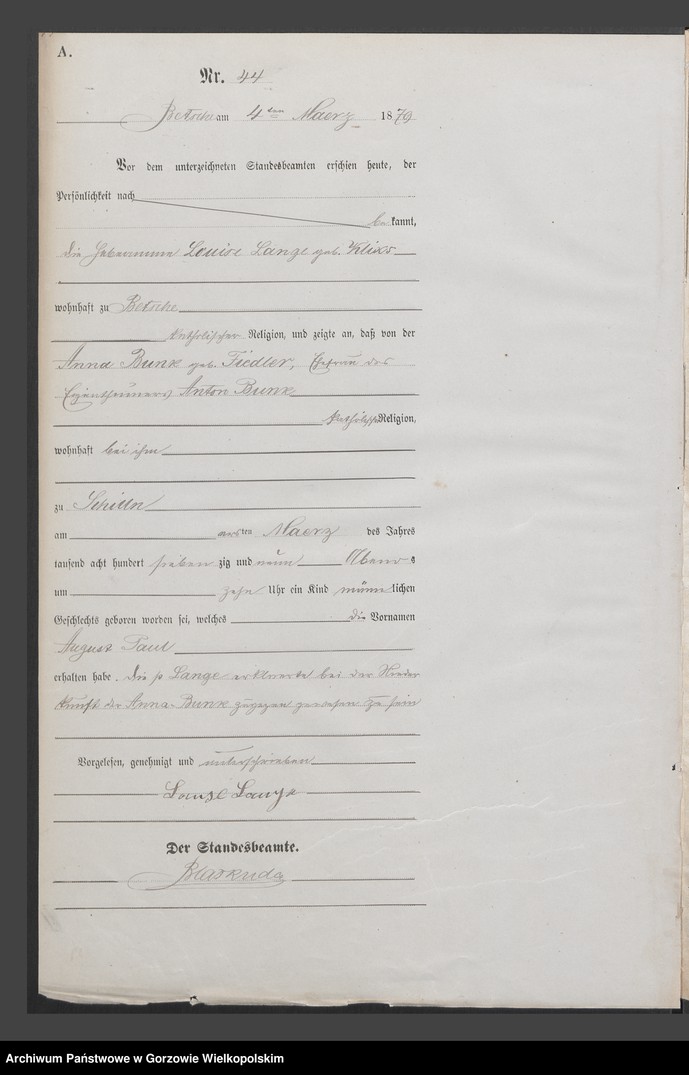 A.
Nr. 44
Betsche am 4ten Maerz 1879
Vor dem unterzeichneten Standesbeamten erschien heute, der
Persönlichkeit nach
bekannt,
die Hebeamme Louise Lange geb. Klixs
wohnhaft zu Betsche
katholischer Religion, und zeigte an, daß von der
Anna Bunk geb. Fiedler, Ehefrau des
Eigenthümers Anton Bunk
katholisch Religion,
wohnhaft bei ihm
zu Schilln
am ersten Maerz des Jahres
tausend acht hundert sieben zig und neun Abends
um zehn Uhr ein Kind männlichen
Geschlechts geboren worden sei, welches die Vornamen
August Paul
erhalten habe. Die p Lange erklaerte bei der Nieder
kunft der Anna Bunk zugegen gewesen zu sein
Vorgelesen, genehmigt und unterschrieben
Louise Lange
Der Standesbeamte.
Archiwum Państwowe w Gorzowie Wielkopolskim